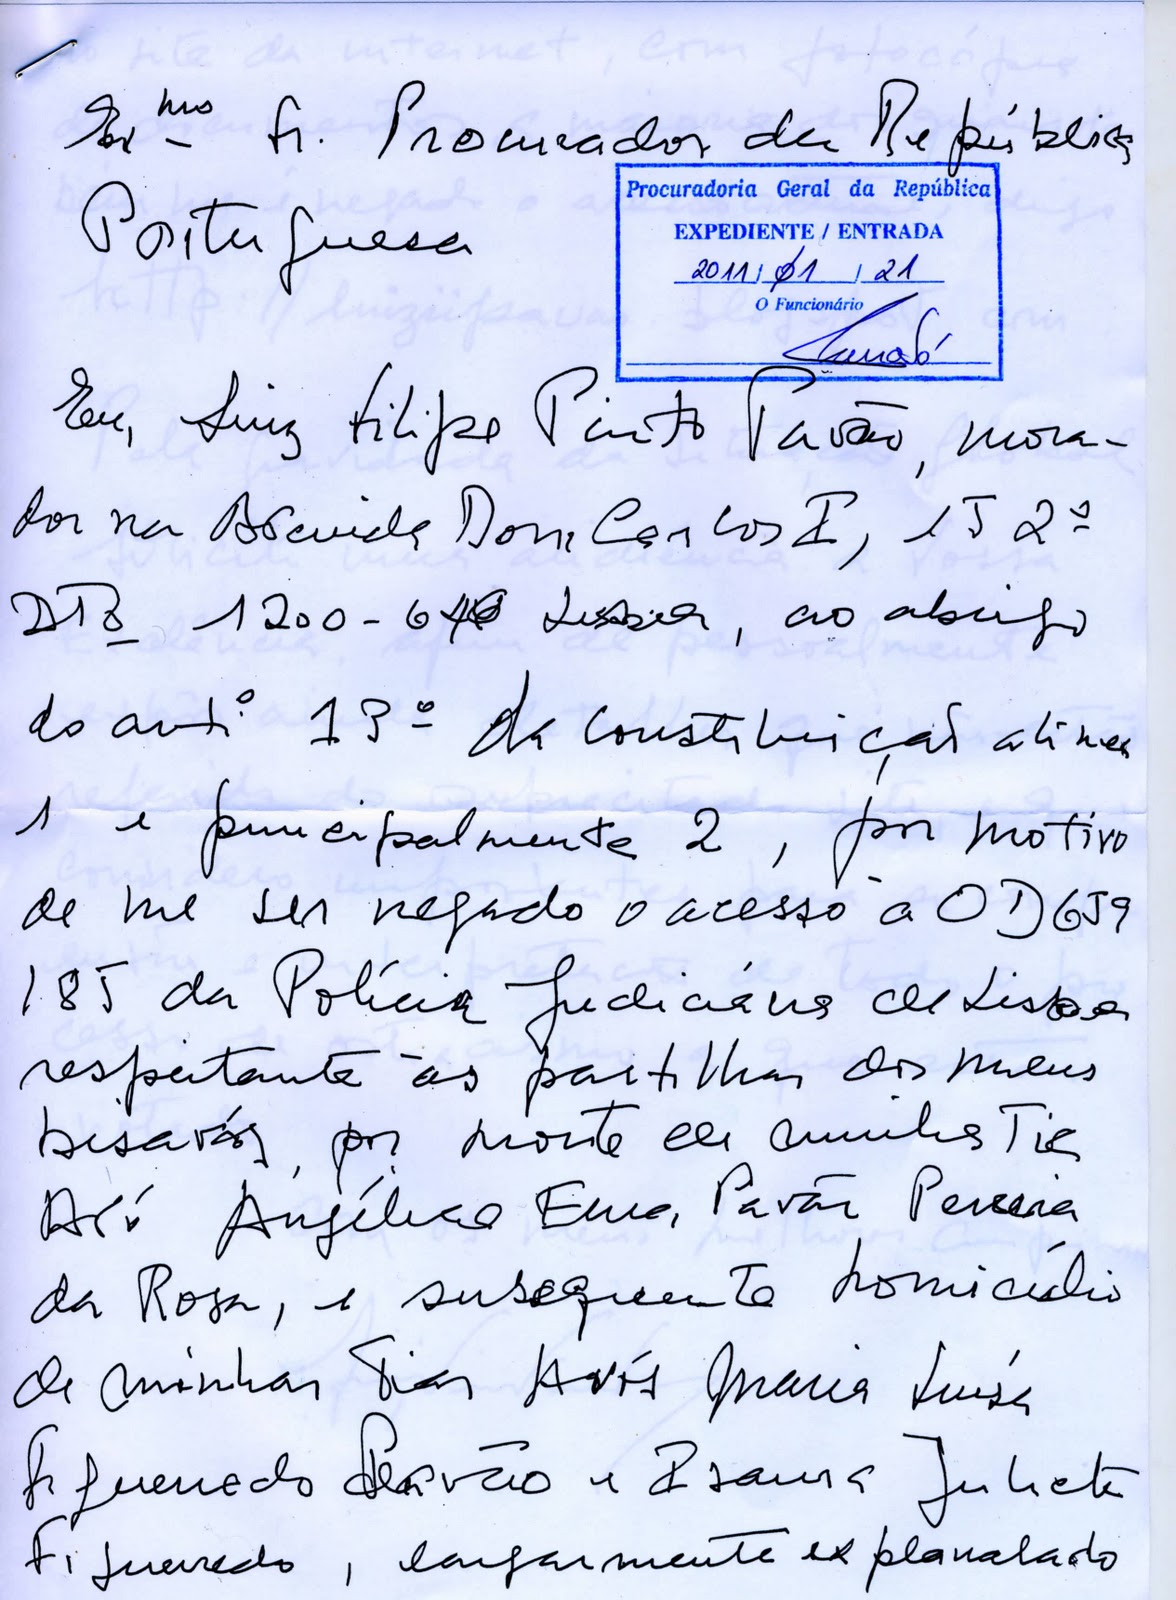 Exmo Sr. Procurador da República
Portuguesa
Procuradoria Geral da República
EXPEDIENTE / ENTRADA
2011 / 01 / 21
O Funcionário
Eu, Luiz Filipe Pinto Pavão, mora-
dor na Avenida Dom Carlos I, 15 2º
DTº 1200-64 Lisboa, ao abrigo
do artº 13º da Constituição alinea
1 e principalmente 2, por motivo
de me ser negado o acesso à OD659
185 da Polícia Judiciária de Lisboa
respeitante às partilhas dos meus
bisavós, por morte de minha Tia
Avó Angélica Ema Pavão Pereira
da Rosa, e subsequente homicídio
de minhas Tias Avós Maria Luísa
Figueredo Pavão e Isaura Julieta
Figueredo, largamente explanado